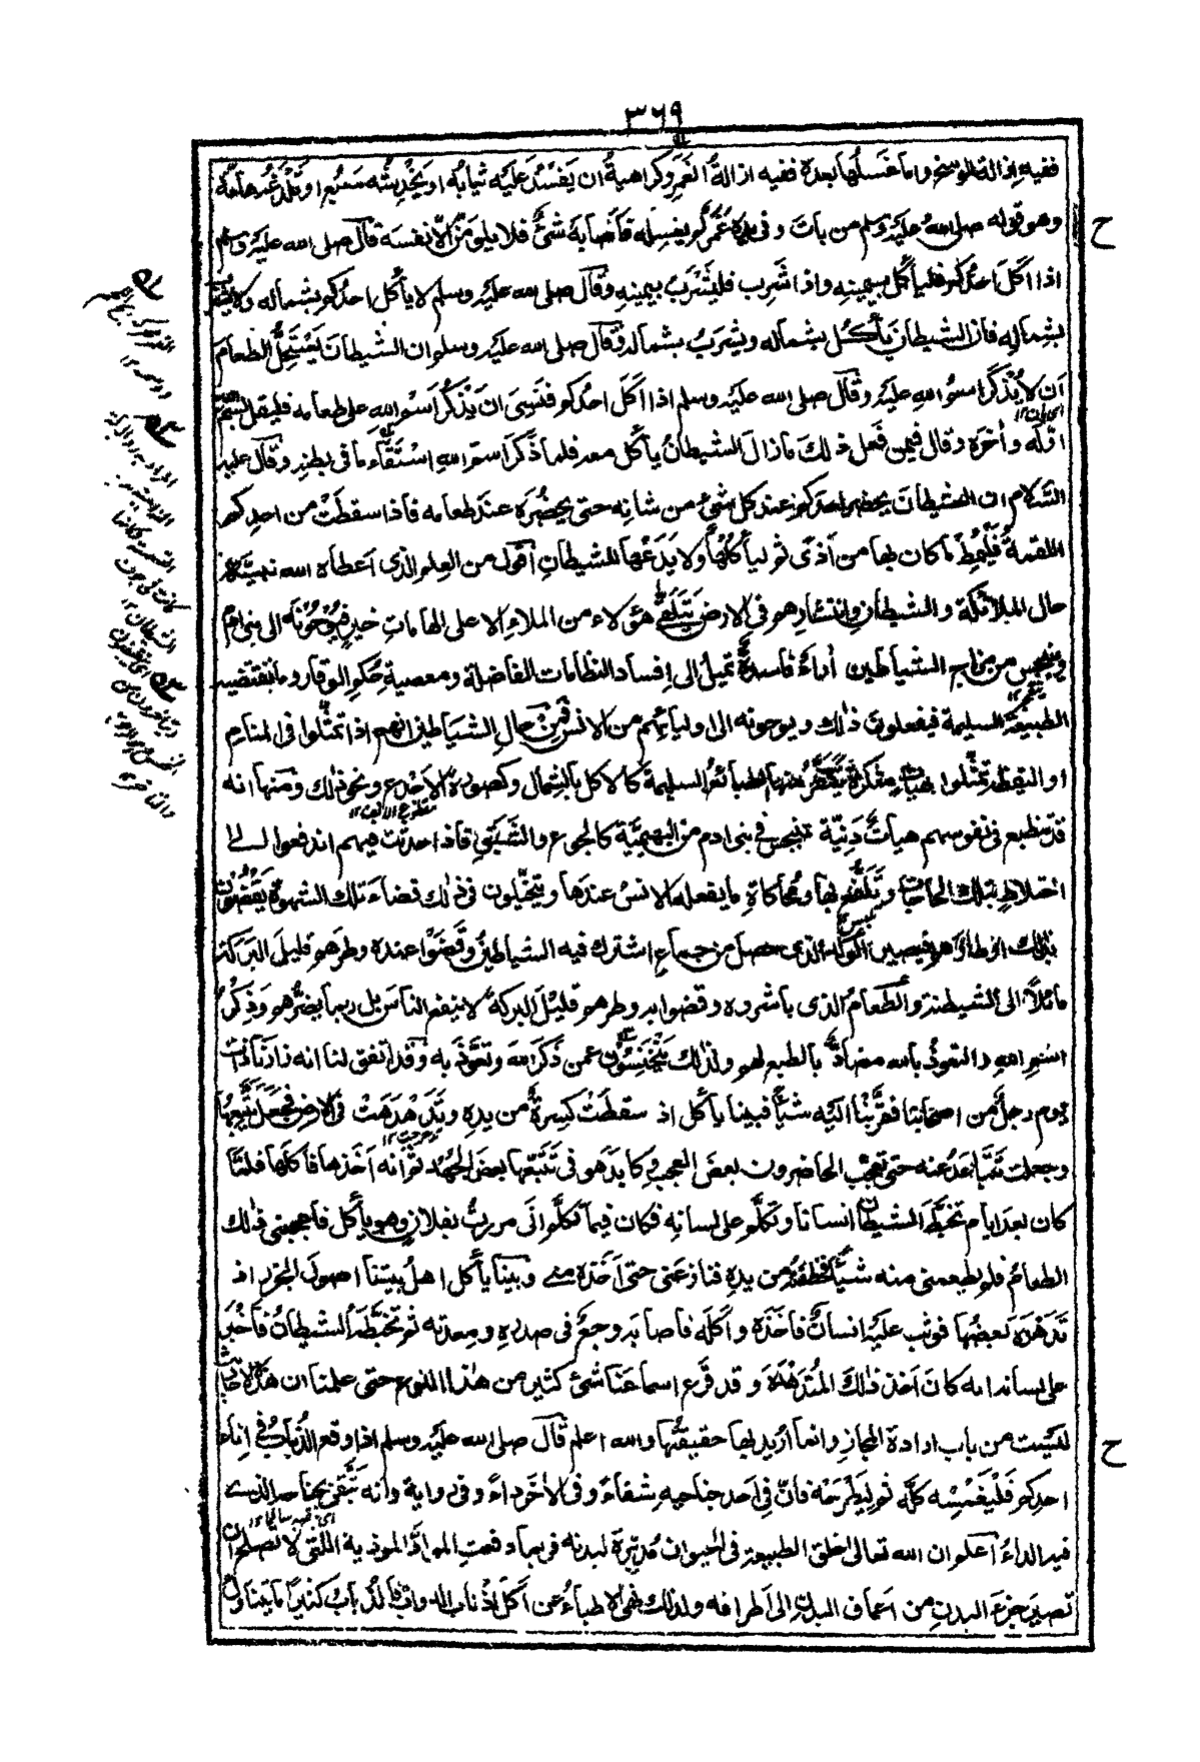 ٣٦٩
ففيه ازالة الوسخ واما غسلها بعده ففيه ازالةُ الغَمَر وكراهيةُ ان يَفْسُدَ عليه ثيابُه او يَخْدِشُه سَبُع او تَلْدَغُه هامّة
وهو قوله صلى الله عليه وسلم من بات وفى يده غَمَرٌ لم يغسله فاَصابه شئٌ فلا يلومَنَّ الّا نفسه قال صلى الله عليه وسلم
اذا اكَل احدُكم فليأكل بيمينهِ واذا شَرِب فليشْرَبْ بيمينهِ وقال صلى الله عليه وسلم لا يأكل احدُكم بشماله ولا يشرب
بشمالِه فان الشيطانَ يأكل بشماله ويشرَبُ بشماله وقال صلى الله عليه وسلم ان الشيطانَ يَسْتَحِلُّ الطعامَ
اَن لا يُذْكَرَ اسمُ اللهِ عليه وقال صلى الله عليه وسلم اذا اَكَلَ احدُكم فنَسِىَ ان يَذْكُرَ اسْمَ اللهِ على طعامه فليقل بسم الله
اوّلَه واٰخرَه وقال فيمن فعل ذلك ما زال الشيطانُ يأكل معه فلما ذَكَرَ اسمَ اللهِ اسْتَقَاء ما فى بطنهِ وقال عليه
السّلام ان الشيطانَ يحضر احدَكم عند كل شئٍ من شانِه حتى يحضُرَه عندَ طعامه فاذا سقطَتْ من احدِكم
اللقمةُ فَلْيُمِطْ ما كان بها من اَذىً ثم ليأكُلْها ولا يدَعْها للشيطانِ اَقول من العِلم الذى اَعطاه الله نبيَّه
حال الملائكة والشيطان وانتشارِهم فى الارض يَتَلَقّٰى هؤلاء من الملاءِ الاعلى الهاماتِ خيرٍ فيُوْحُوْنَه الى بنى ادم
وينبجس من مزاجِ الشياطين اٰراءٌ فاسدةٌ تميلُ الى اِفساد النظامات الفاضلة ومعصيةِ حُكمِ الوقار وما تقتضيه
الطبيعة السليمة فيفعلون ذلك ويوحونه الى اولياءِهم من الانس فمن حالِ الشياطين انهم اذا تمثّلوا فى المنام
او اليقظة تمثّلوا بهيأتٍ منكرةٍ يَتنفّرُ منها الطبائعُ السليمة كالاكل بالشمال وكصورةِ الاَجْدع ونحو ذلك ومنها انه
قد ينطبع فى نفوسهم هيأتٌ دَنيّة تنبجس فى بنى ادم من البهيميّة كالجوع والشَبَق فاذا حدثت فيهم اندفعوا الى
اختلاطٍ بتلك الحاجات وتَلَفُّع بها ومحاكاةِ ما يفعله الانسُ عندها ويتخيّلون فى ذلك قضاءَ تلك الشهوةِ يَقْضُون
بذلك اوطارَهم فيصير الولدُ الذى حصل من جماعٍ اشترك فيه الشياطينُ وقَضَوْا عنده وطرَهم قليلَ البركة
مائلاً الى الشيطنة والطعامُ الذى باشروه وقضوا به وطرهم قليْلَ البركة لا ينفع الناسَ بل ربما يضرُّهم وذِكْرُ
اسمِ اللهِ والتعوذُ بالله مضادٌّ بالطبع لهم ولذلك يَنْخَنِسُوْن عمن ذَكَرَ اللهَ وتعوَّذ به وقد اتفق لنا انه زارَنا ذات
يوم رجلٌ من اصحابنا فقرَّبْنا اليه شيئًا فبينا يأكل اذ سقطَتْ كِسرةٌ من يدهِ وتَدَهْدَهَتْ فى الارض فجعل يَتّبِعُها
وجعلت تَتَباعَدُ عنه حتى تعجّب الحاضرون بعضَ العجب وكابدَ هو فى تَتَبُّعها بعضَ الجهد ثم انه اَخَذها فاَكلَها فلمّا
كان بعدَ ايام تخبَّطَ الشيطانُ انسانا وتكلَّم على لسانهِ فكان فيما تكلَّم انّى مررتُ بفلانٍ وهو يأكل فاعجبنى ذلك
الطعامُ فلم يطعمنى منه شيئًا فخطفتُه من يدهِ فنازعَنى حتى اَخَذه منى وبينا يأكل اهلُ بيتنا اصولَ الجزر اذ
تَدَهْدَه بعضُها فوثب عليه انسانٌ فاخَذَه واَكَلَه فاصابَه وجعٌ فى صدره ومعدته ثم تخبَّطَه الشيطانُ فاَخْبَر
على لسانه انه كانَ اخذ ذلك المُتَدَهْدَه وقد قَرَع اسماعَنا شئٌ كثير من هذا النوع حتى علمنا ان هذه الاحاديث
ليست من باب ارادة المجازِ وانما اُريد بها حقيقتُها والله اعلم قال صلى الله عليه وسلم اذا وقع الذُبابُ فى اِناءِ
احدِكم فَلْيَغْمِسْه كلَّه ثم لِيَطْرَحْه فانّ فى اَحدِ جناحيهِ شِفاءً وفى الاٰخرِ داءً وفى روايةٍ وانه يَتَّقى بجناحه الذى
فيه الداءُ اعلم ان الله تعالى خلق الطبيعة فى الحيوان مُدبّرةً لبدنه فربما دفعتِ الموادَّ الموذية اللتى لا تصلح ان
تصيرَ جزءَ البدنِ من اَعماق البدنِ الى اَطرافه ولذلك نهى الاطباءُ عن اَكل اَذناب الدواب فالذبابُ كثيرًا ما يتناول
ح
ح